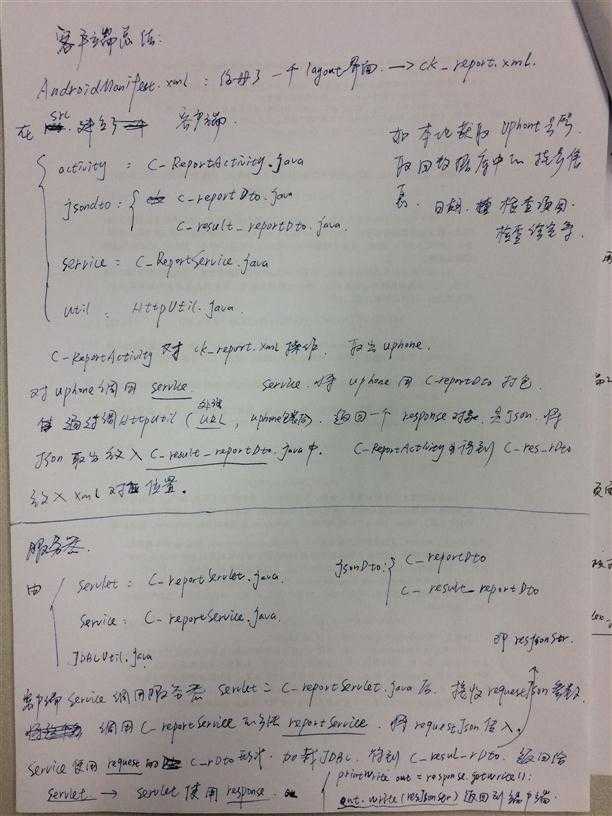 客户端总结:
AndroidManifest.xml : 给出了一个layout界面 → ck_report.xml.
在 src 建立了 客户端.
activity = C-ReportActivity.java
jsondto: C-reportDto.java
C-result_reportDto.java.
service = C-ReportService.java
util : HttpUtil.java.
如本地获取 Uphone号码
取回数据库中的 信息
表. 日期. 检查项目.
检查结果等
C-ReportActivity 对 ck_report.xml操作. 取出uphone.
对uphone调用 service service.将 uphone 用 C-reportDto 打包.
通过调HttpUtil ( URL , uphone包装后). 返回一个 response 对象, 是Json. 将
Json 取出放入 C-result_reportDto.java中. C-ReportActivity 得到 C-res_rDto
放入 xml 对应位置。
服务器.
由 servlet = C-reportServlet.java.
service = C-reportService.java.
JDBCUtil.java
jsonDto: C-reportDto
C-result_reportDto
即 resJsonStr.
客户端 service 调用服务器 servlet = C-reportServlet.java后. 接收requestJson参数.
调用C-reportService 的方法 reportService. 将 requestJson 传入.
service 使用 request 的 C-rDto 形式. 加载JDBC. 得到 C-resul-rDto. 返回给
servlet → servlet 使用 response.
printWrite out = response.getWrite();
out.write(resJsonStr) 返回到客户端.